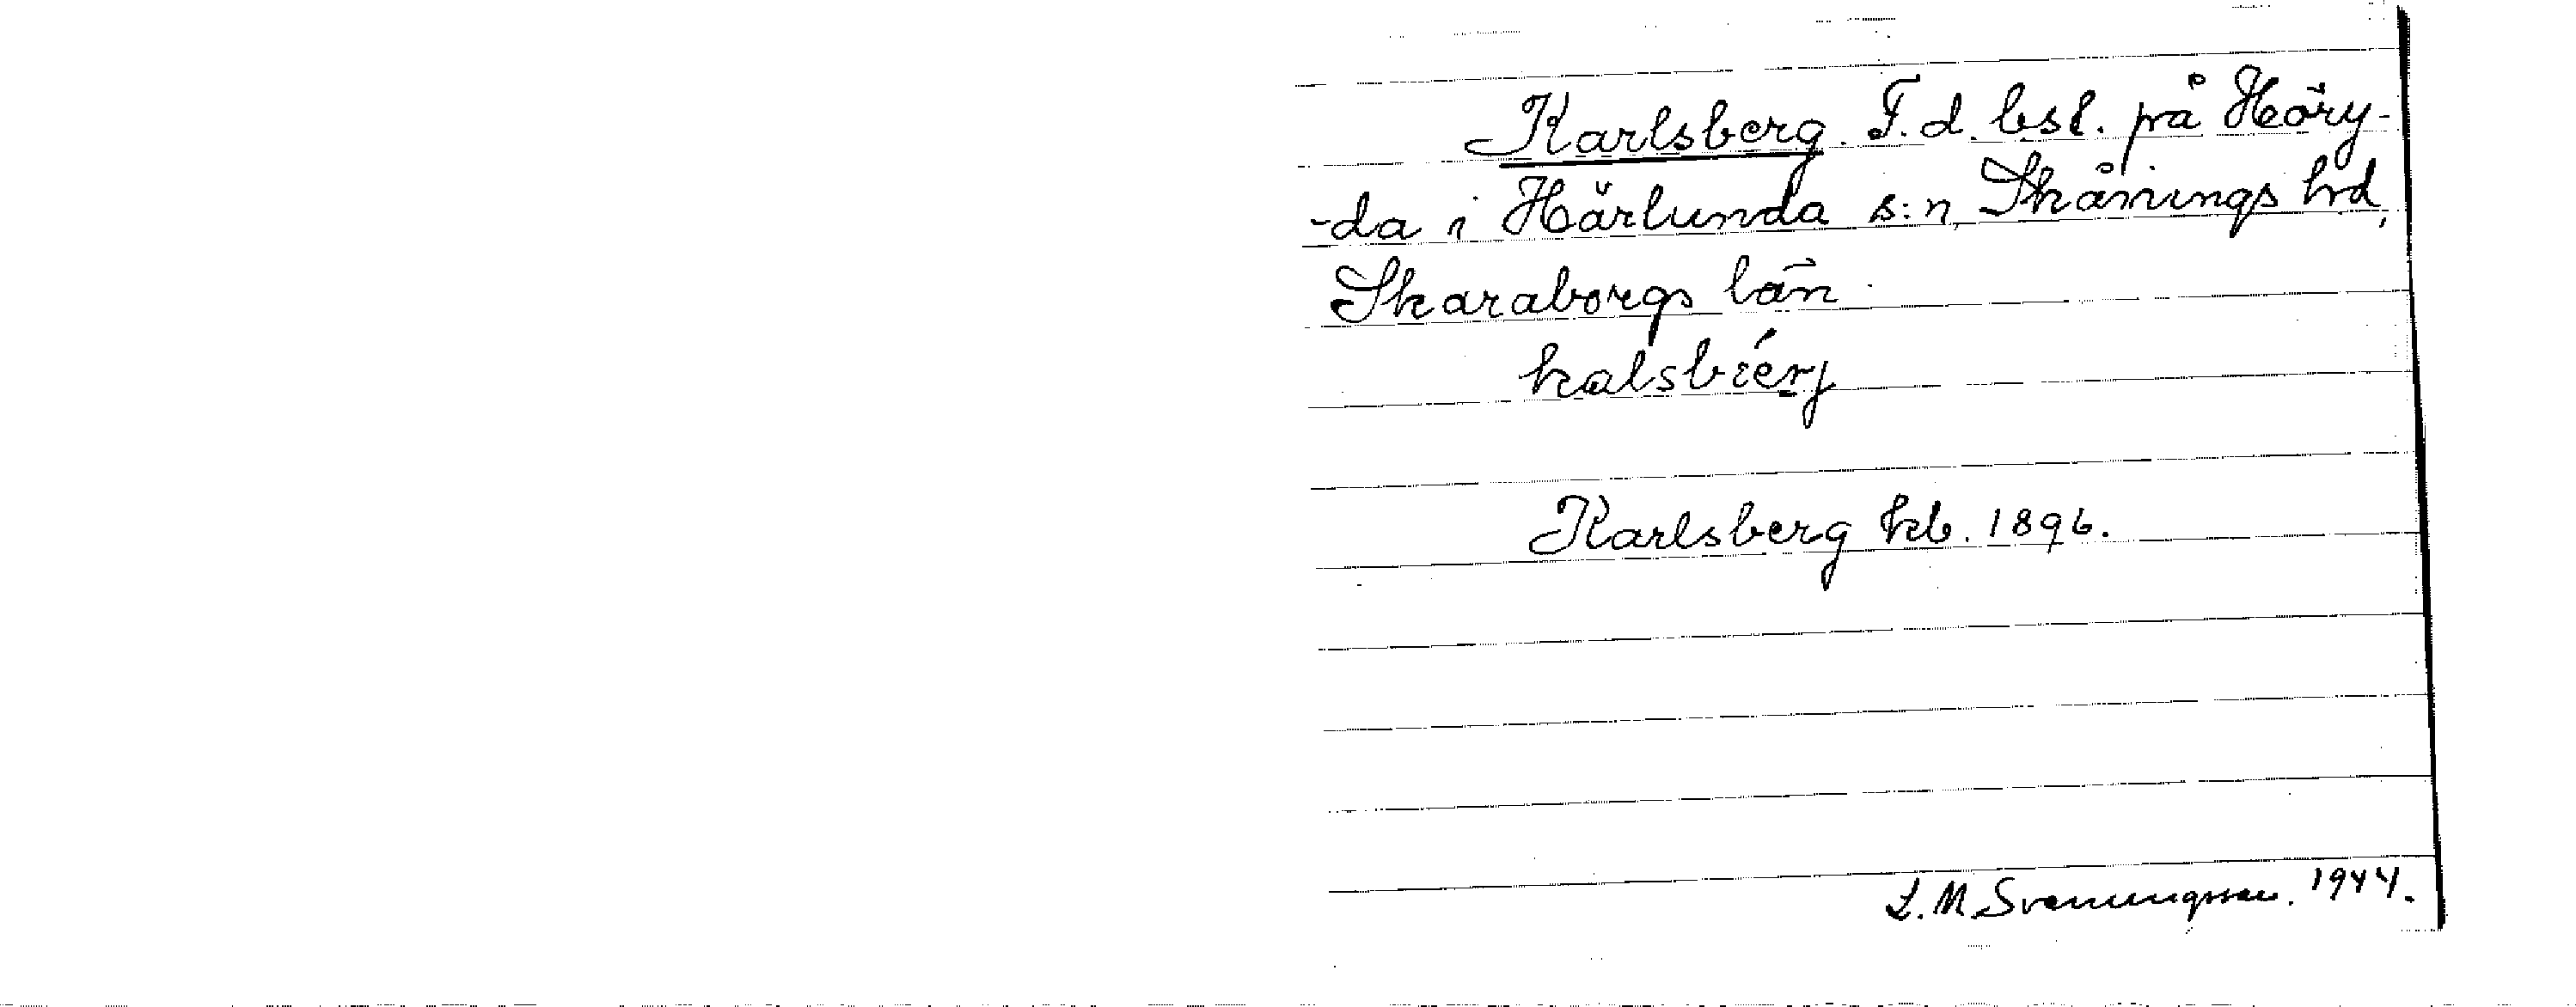 Karlsberg. F.d. bsl. på Höry-
-da i Härlunda s:n, Skånings hd,
Skaraborgs län
kalsbérj
Karlsberg kb. 1896.
L.M. Svenungsson. 1944.